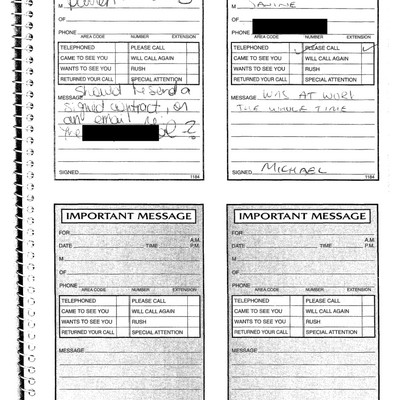 M
OF
PHONE
AREA CODE NUMBER EXTENSION
TELEPHONED PLEASE CALL
CAME TO SEE YOU WILL CALL AGAIN
WANTS TO SEE YOU RUSH
RETURNED YOUR CALL SPECIAL ATTENTION
MESSAGE Should he send a
signed contract, or
an email re:
the
SIGNED
1184
M
OF
PHONE
AREA CODE NUMBER EXTENSION
TELEPHONED ✓ PLEASE CALL ✓
CAME TO SEE YOU WILL CALL AGAIN
WANTS TO SEE YOU RUSH
RETURNED YOUR CALL SPECIAL ATTENTION
MESSAGE WAS AT WORK
THE WHOLE TIME
SIGNED MICHAEL
1184
IMPORTANT MESSAGE
FOR
A.M.
DATE TIME P.M.
M
OF
PHONE
AREA CODE NUMBER EXTENSION
TELEPHONED PLEASE CALL
CAME TO SEE YOU WILL CALL AGAIN
WANTS TO SEE YOU RUSH
RETURNED YOUR CALL SPECIAL ATTENTION
MESSAGE
IMPORTANT MESSAGE
FOR
A.M.
DATE TIME P.M.
M
OF
PHONE
AREA CODE NUMBER EXTENSION
TELEPHONED PLEASE CALL
CAME TO SEE YOU WILL CALL AGAIN
WANTS TO SEE YOU RUSH
RETURNED YOUR CALL SPECIAL ATTENTION
MESSAGE